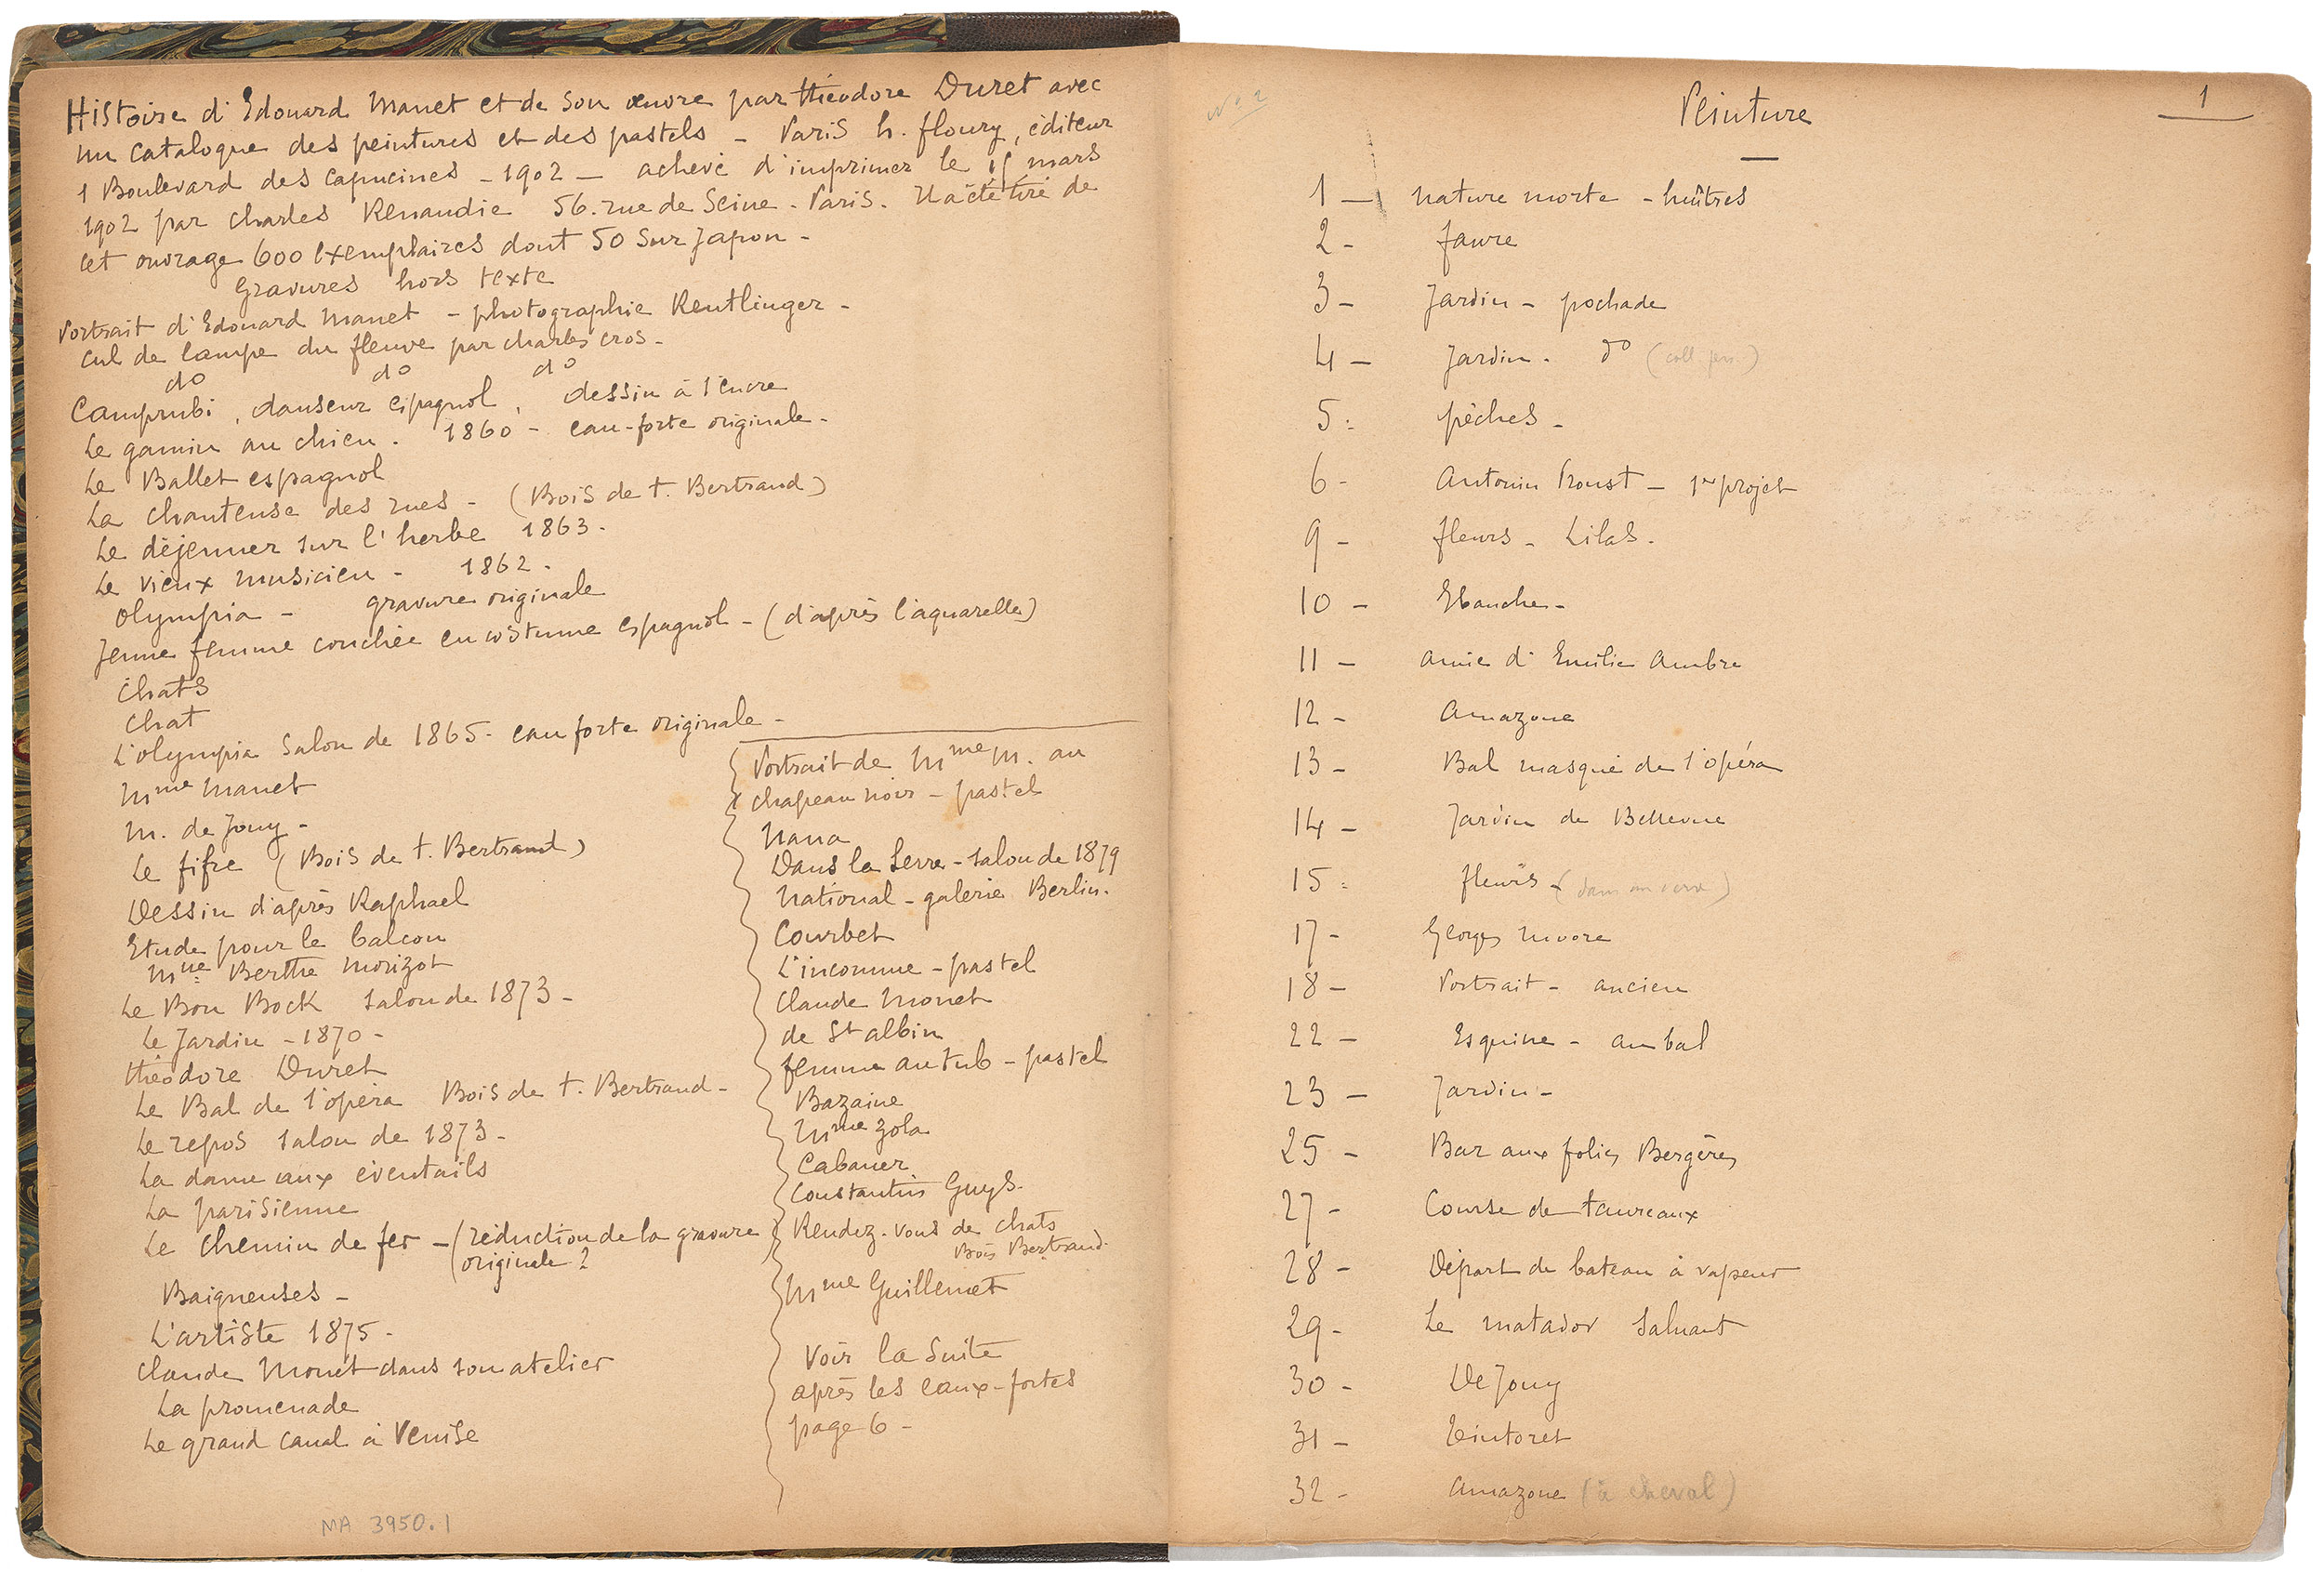 Histoire d'Edouard Manet et de son œuvre par théodore Duret avec
un catalogue des peintures et des pastels - Paris h. floury, éditeur
1 Boulevard des capucines - 1902 - achevé d'imprimer le 15 mars
1902 par charles Renaudie 56. rue de Seine - Paris. Il a été tiré de
cet ouvrage 600 Exemplaires dont 50 Sur Japon -
Gravures hors texte
Portrait d'Edouard Manet - photographie Reutlinger -
cul de lampe du fleuve par charles cros -
do do do
Camprubi, danseur espagnol, dessin à l'encre
Le gamin au chien. 1860 - eau-forte originale -
Le Ballet espagnol
La chanteuse des rues - (Bois de t. Bertrand)
Le déjeuner sur l'herbe 1863 -
Le vieux musicien - 1862 -
Olympia - gravure originale
Jeune femme couchée en costume espagnol - (d'après l'aquarelle)
Chats
Chat
L'olympia Salon de 1865 - eau forte originale -
Mme Manet
M. de Jouy -
Le fifre (Bois de t. Bertrand)
Dessin d'après Raphael
Etude pour le balcon
Mlle Berthe Morizot
Le Bon Bock Salon de 1873 -
Le Jardin - 1870 -
théodore Duret
Le Bal de l'opéra Bois de t. Bertrand -
Le repos Salon de 1873 -
La dame aux éventails
La parisienne
Le chemin de fer - (réduction de la gravure
originale?
Baigneuses -
L'artiste 1875 -
Claude Monet dans son atelier
La promenade
Le grand canal à Venise
Portrait de Mme M. au
chapeau noir - pastel
Nana
Dans la Serre - Salon de 1879
National - galerie Berlin.
Courbet
L'inconnue - pastel
Claude Monet
de St albin
femme au tub - pastel
Bazaine
Mme Zola
Cabaner
Constantin Guys.
Rendez-vous de chats
Bois Bertrand.
Mme Guillemet
Voir la Suite
après les eaux-fortes
page 6 -
MA 3950.1
No 2
1
Peinture
1 - nature morte - huîtres
2 - faure
3 - Jardin - pochade
4 - Jardin - do (coll. pers.)
5 - pêches -
6 - Antonin Proust - 1er projet
9 - fleurs - Lilas -
10 - Ebauche -
11 - amie d'Emilie Ambre
12 - Amazone
13 - Bal masqué de l'opéra
14 - Jardin de Bellevue
15 - fleurs - (dans un verre)
17 - Georges Moore
18 - Portrait - ancien
22 - Esquisse - au bal
23 - Jardin -
25 - Bar aux folies Bergères
27 - Course de taureaux
28 - Départ du bateau à vapeur
29 - Le matador saluant
30 - De Jouy
31 - Tintoret
32 - Amazone (à cheval)